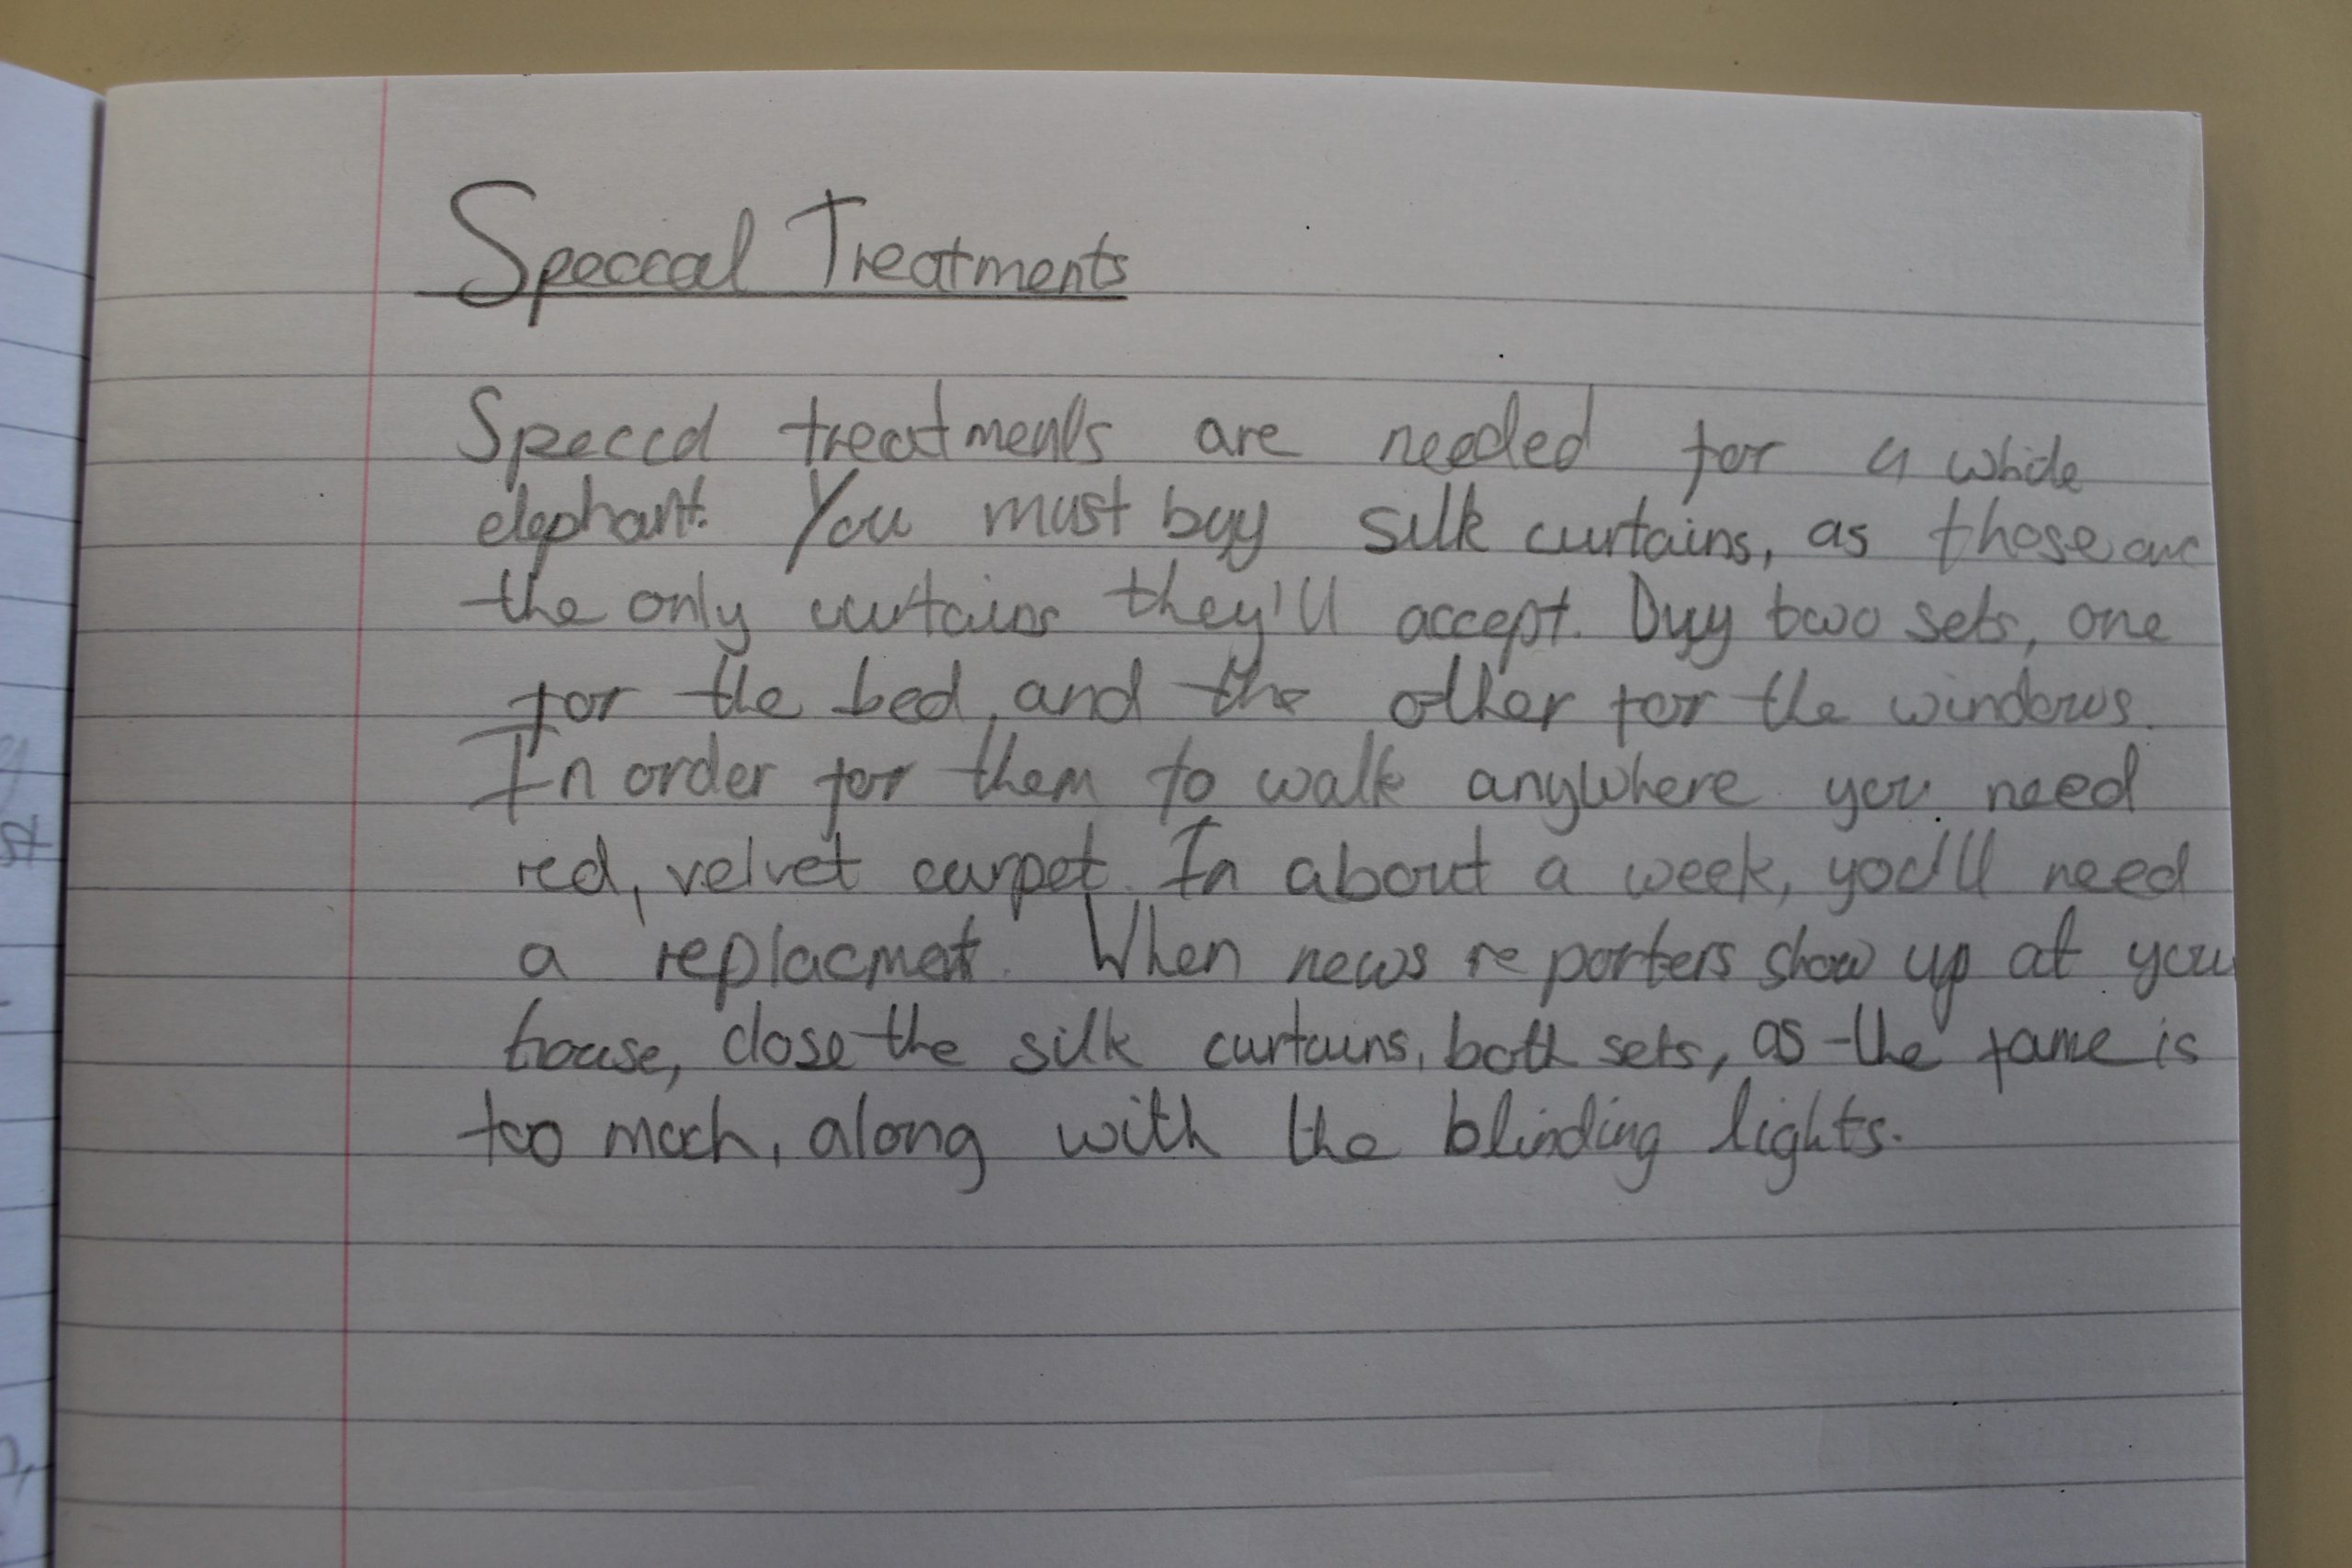 Special Treatments
Special treatments are needed for a white
elephant. You must buy silk curtains, as those are
the only curtains they'll accept. Buy two sets, one
for the bed, and the other for the windows.
In order for them to walk anywhere you need
red, velvet carpet. In about a week, you'll need
a replacment. When news reporters show up at your
house, close the silk curtains, both sets, as the fame is
too much, along with the blinding lights.